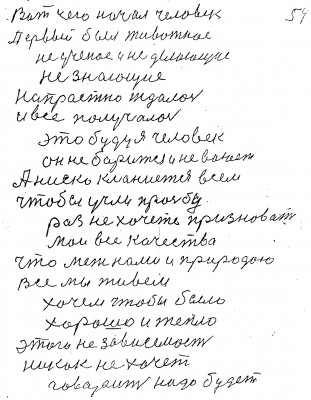 Вот чего начал человек 54
Первый был животное
не ученое и не делающие
не знающие
Напрастно ждалох
и все получалох
это будуя человек
он не барится и не
А ниско кланиется всем
чтобы учли прозбу
раз не хочеть призноват
мои все качества
что меж нами и природою
все мы живем
хочем чтобы было
хорошо и тепло
этого не зависемост
никак не хочет
говарит надо будет